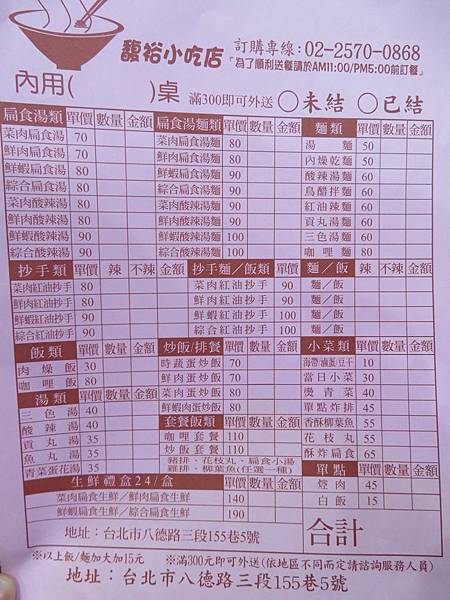 馥裕小吃店
訂購專線:02-2570-0868
『為了順利送餐請於AM11:00/PM5:00前訂餐』
內用(        )桌 滿300即可外送 ○未結 ○已結
扁食湯類 單價 數量 金額 扁食湯麵類 單價 數量 金額 麵類 單價 數量 金額
菜肉扁食湯 70 菜肉扁食湯麵 80 湯麵 50
鮮肉扁食湯 70 鮮肉扁食湯麵 80 內燥乾麵 50
鮮蝦扁食湯 80 鮮蝦扁食湯麵 90 酸辣湯麵 60
綜合扁食湯 80 綜合扁食湯麵 90 烏醋拌麵 60
菜肉酸辣湯 80 菜肉酸辣湯麵 90 紅油辣麵 60
鮮肉酸辣湯 80 鮮肉酸辣湯麵 90 貢丸湯麵 60
鮮蝦酸辣湯 90 鮮蝦酸辣湯麵 100 三色湯麵 60
綜合酸辣湯 90 綜合酸辣湯麵 100 咖哩麵 80
抄手類 單價 辣 不辣 金額 抄手麵/飯類 單價 麵/飯 辣 不辣 金額
菜肉紅油抄手 80 菜肉紅油抄手 90 麵/飯
鮮肉紅油抄手 80 鮮肉紅油抄手 90 麵/飯
鮮蝦紅油抄手 90 鮮蝦紅油抄手 100 麵/飯
綜合紅油抄手 90 綜合紅油抄手 100 麵/飯
飯類 單價 數量 金額 炒飯/排餐 單價 數量 金額 小菜類 單價 數量 金額
肉燥飯 30 時蔬蛋炒飯 70 海帶/滷蛋/豆干 10
咖哩飯 80 鮮肉蛋炒飯 70 當日小菜 30
湯類 單價 數量 金額 菜肉蛋炒飯 80 燙青菜 40
三色湯 40 鮮蝦肉蛋炒飯 80 單點炸排 45
酸辣湯 40 套餐飯類 單價 數量 金額 香酥柳葉魚 55
貢丸湯 35 咖哩套餐 110 花枝丸 55
魚丸湯 35 炒飯套餐 110 酥炸扁食 65
青菜蛋花湯 35 豬排、花枝丸、扁食小湯 雞排、柳葉魚(任選一種) 單點 單價 數量 金額
生鮮禮盒24/盒 單價 數量 金額 焢肉 45
菜肉扁食生鮮/鮮肉扁食生鮮 140 白飯 15
鮮蝦扁食生鮮/綜合扁食生鮮 190 合計
地址:台北市八德路三段155巷5號
※以上飯/麵加大加15元 ※滿300元即可外送(依地區不同而定請諮詢服務人員)
地址:台北市八德路三段155巷5號